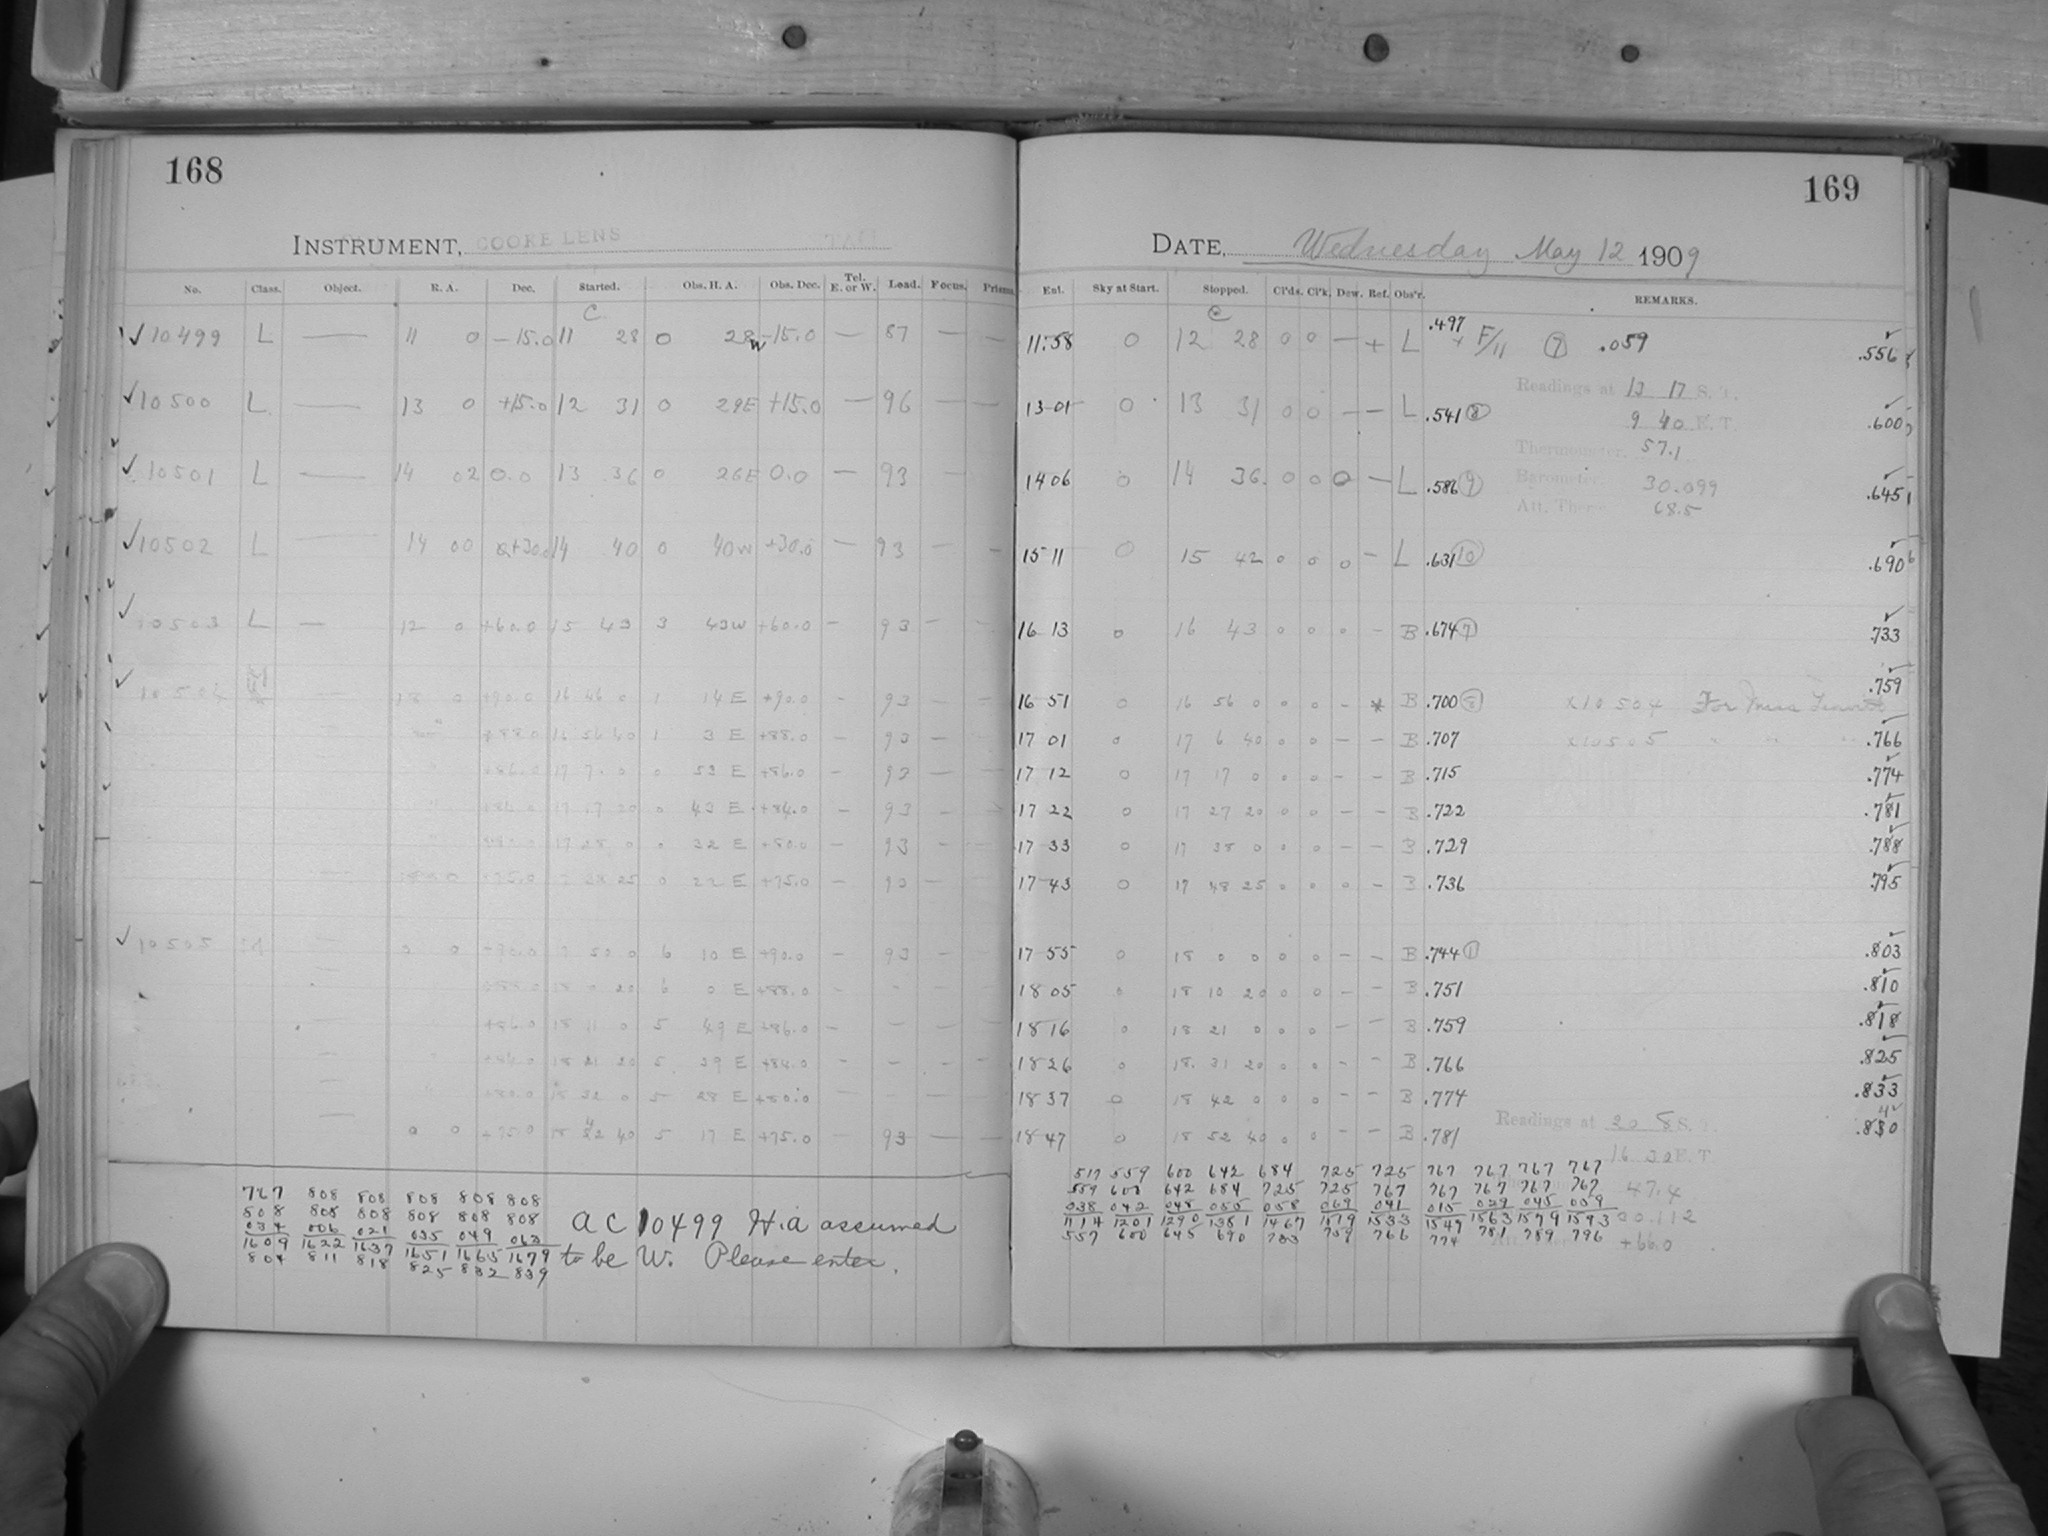 168
INSTRUMENT, COOKE LENS
No. Class. Object. R. A. Dec. Started. Obs. H. A. Obs. Dec. Tel. E. or W. Load. Focus. Prisms.
C
10499 L — 11 0 -15.0 11 28 0 28 W -15.0 — 87 — —
10500 L — 13 0 +15.0 12 31 0 29E +15.0 — 96 — —
10501 L — 14 02 0.0 13 36 0 26E 0.0 — 93 —
10502 L — 14 00 +30.0 14 40 0 40W +30.0 — 93 — —
10503 L — 12 0 +60.0 15 43 3 43W +60.0 — 93 — —
10504 — 18 0 +90.0 16 46 0 1 14 E +90.0 - 93 — —
+88.0 16 56 40 1 3 E +88.0 - 93 — —
+86.0 17 7 0 0 53 E +86.0 - 93 — —
+84.0 17 17 20 0 43 E +84.0 - 93 — —
+80.0 17 28 0 0 32 E +80.0 - 93 — —
+75.0 38 25 0 22 E +75.0 - 93 —
10505 — 0 0 +90.0 50 0 6 10 E +90.0 - 93 - -
+88.0 18 0 20 6 0 E +88.0 - - - -
+86.0 18 11 0 5 49 E +86.0 - - - -
+84.0 18 21 20 5 39 E +84.0 - - - -
+80.0 18 32 0 5 28 E +80.0 - - - -
0 0 +75.0 18 42 40 5 17 E +75.0 - 93 — —
767 808 808 808 808 808
808 808 808 808 808 808
034 006 021 035 049 063
1609 1622 1637 1651 1665 1679
804 811 818 825 832 839
AC 10499 H.a assumed
to be W. Please enter.
169
DATE, Wednesday May 12 1909
Ent. Sky at Start. Stopped. Cl'ds. Cl'k. Dew. Ref. Obs'r. REMARKS.
C
11:58 0 12 28 0 0 — + L .497 + F/11 (7) .059 .556
Readings at 13 17 S. T.
13 01 0 13 31 0 0 — — L .541 (8) .600
9 40 E. T.
Thermometer, 57.1
14 06 0 14 36 0 0 0 — L .586 (9) .645
Barometer 30.099
Att. Ther. 68.5
15 11 0 15 42 0 0 0 - L .631 (10) .690
16 13 0 16 43 0 0 0 - B .674 (7) .733
16 51 0 16 56 0 0 0 - * B .700 x10504 For Miss .759
17 01 0 17 6 40 0 0 - - B .707 x10505 " " " .766
17 12 0 17 17 0 0 0 - - B .715 .774
17 22 0 17 27 20 0 0 - - B .722 .781
17 33 0 17 38 0 0 0 - - B .729 .788
17 43 0 17 48 25 0 0 0 - B .736 .795
17 55 0 18 0 0 0 0 - - B .744 (1) .803
18 05 0 18 10 20 0 0 - - B .751 .810
18 16 0 18 21 0 0 0 - - B .759 .818
18 26 0 18 31 20 0 0 - - B .766 .825
18 37 0 18 42 0 0 0 - - B .774 .833
18 47 0 18 52 40 0 0 - - B .781 .840
Readings at 20 8 S. T.
16 30 E. T.
517 559 600 642 684 725 725 767 767 767 767
559 600 642 684 725 725 767 767 767 767 767
038 042 048 055 058 069 041 015 029 045 059
1114 1201 1290 1381 1467 1519 1533 1549 1563 1579 1593
557 600 645 690 733 759 766 774 781 789 796
47.4
+66.0